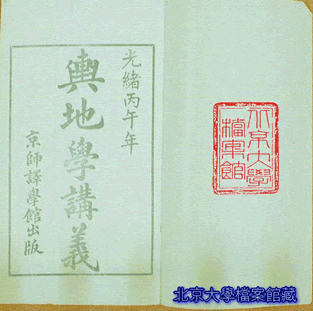 光緒丙午年
輿地學講義
京師譯學館出版
北京大學檔案館
北京大學檔案館藏